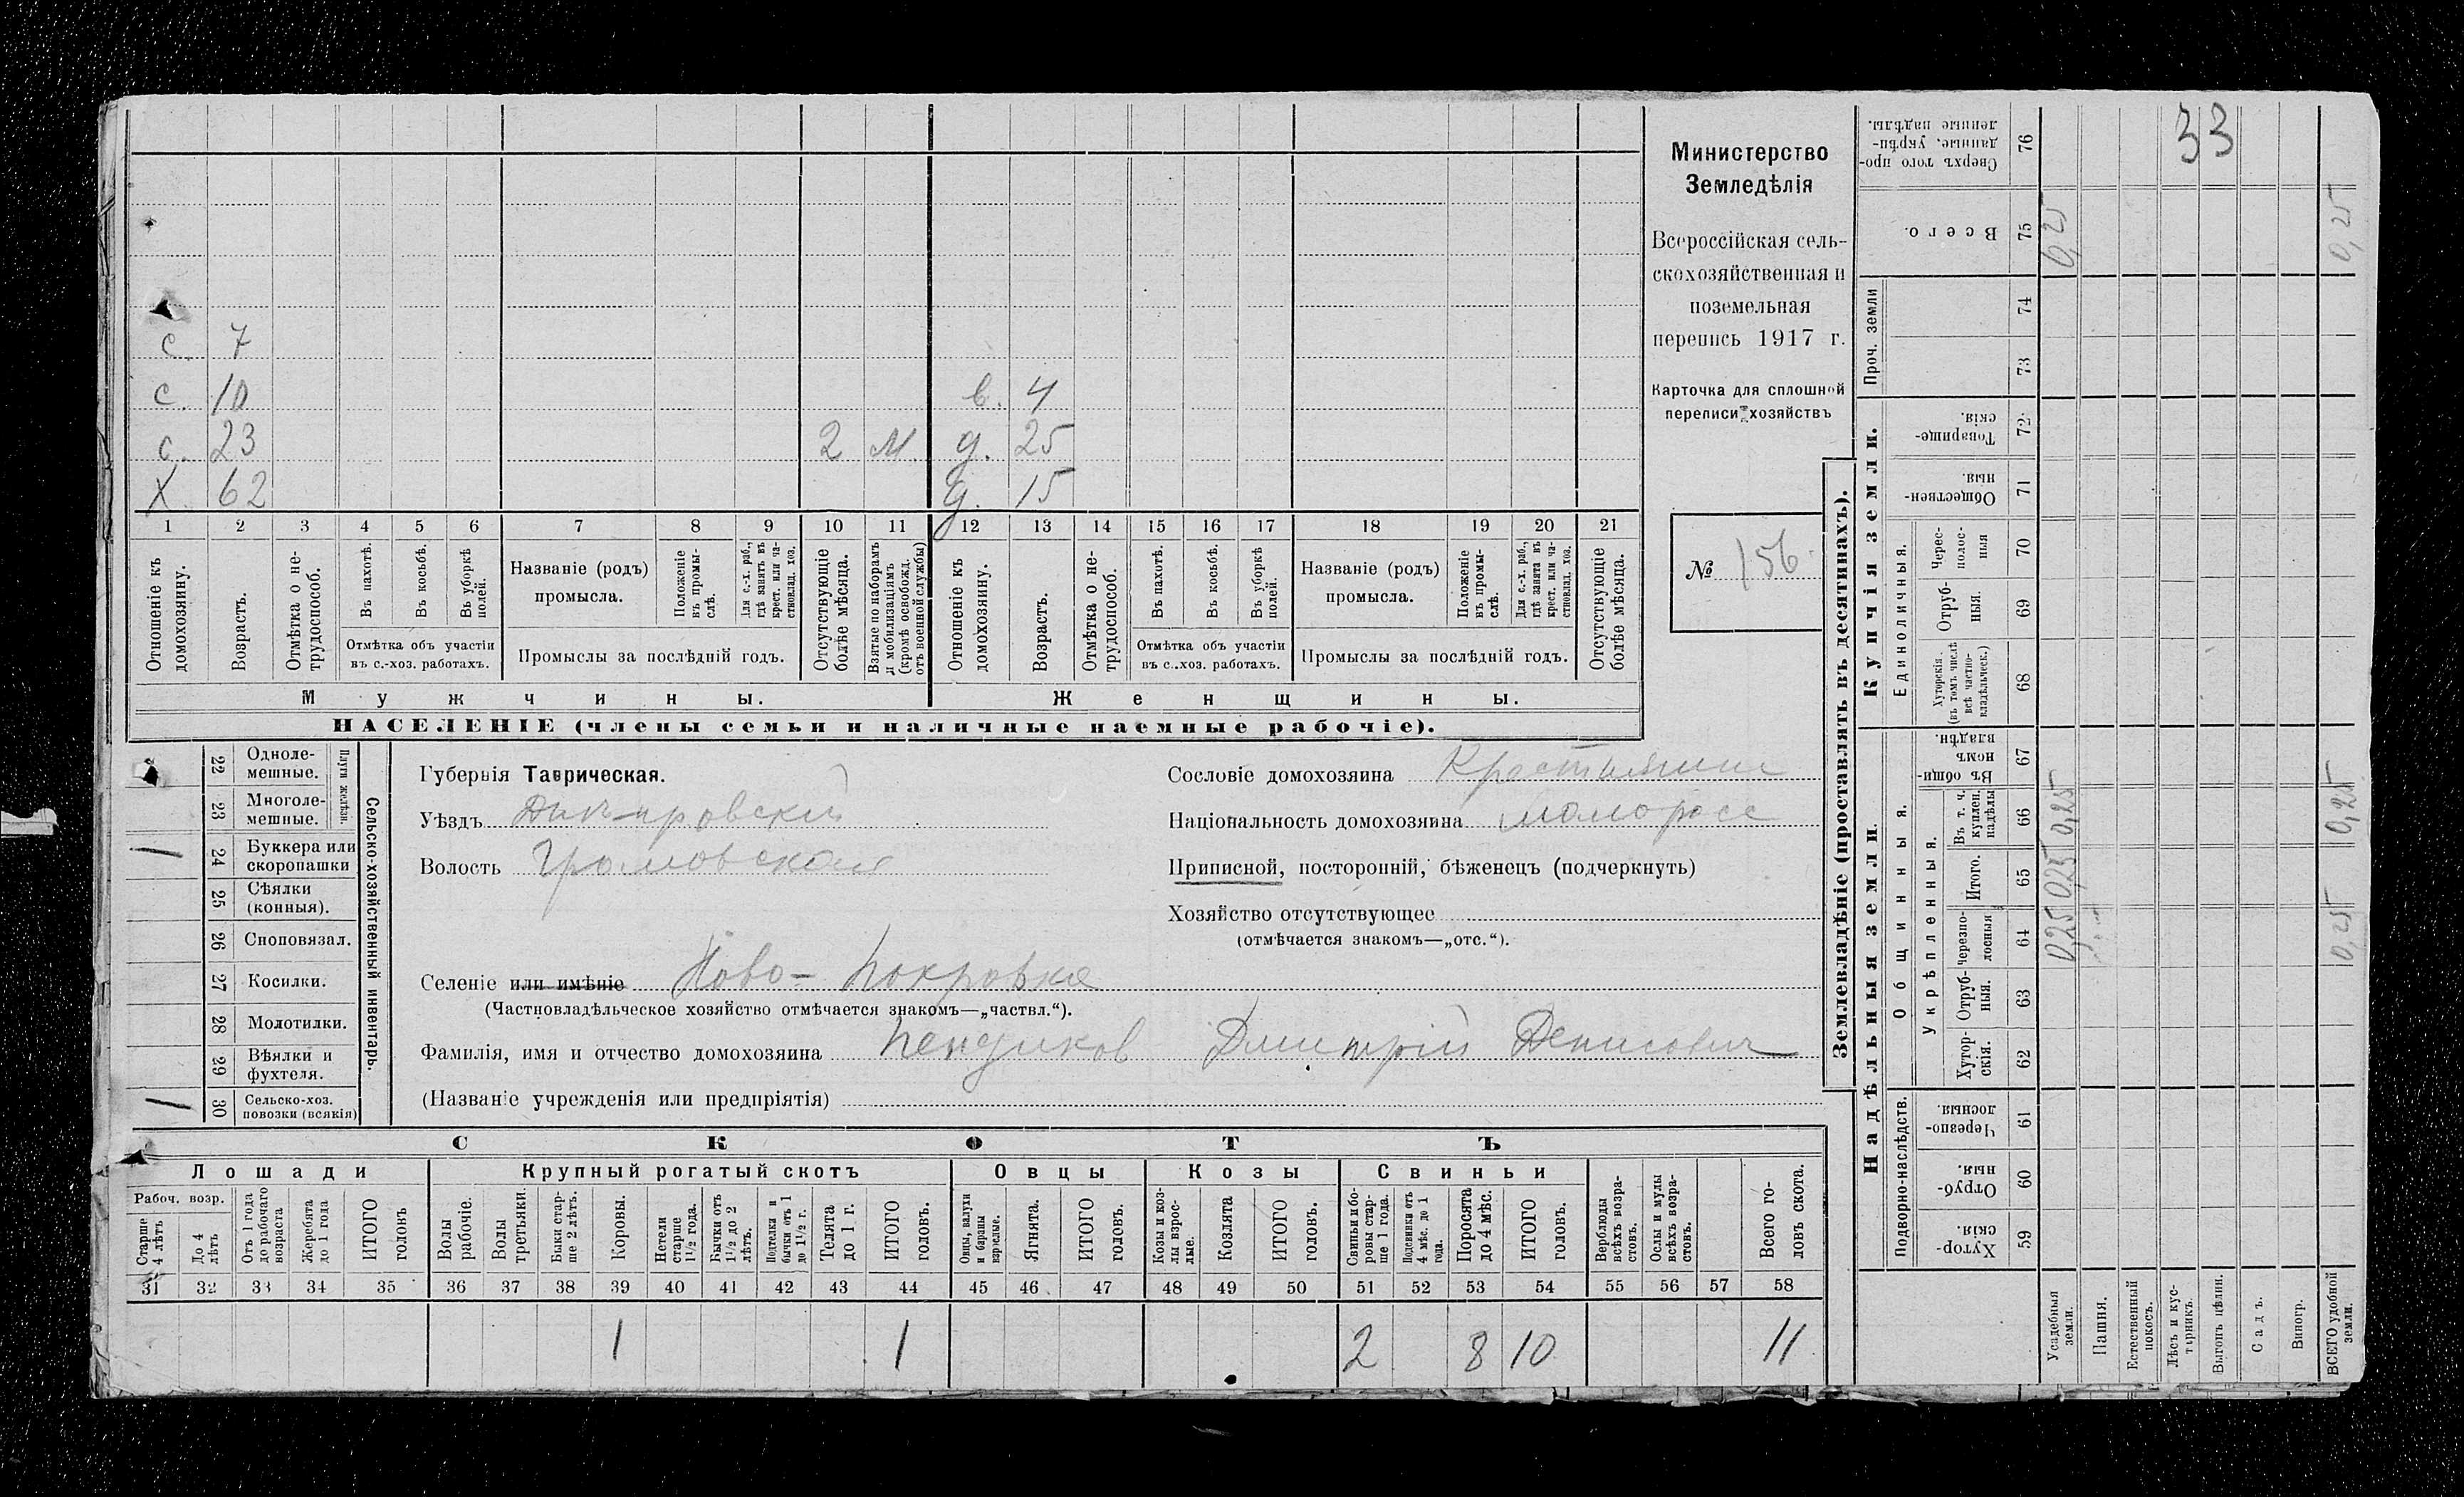 с. 7
с. 10 в. 4
с. 23 2 м. д. 25
Х 62 д. 15
1 2 3 4 5 6 7 8 9 10 11 12 13 14 15 16 17 18 19 20 21
Отношеніе къ домохозяину.
Возрастъ.
Отмѣтка о не-
трудоспособ.
Въ пахотѣ.
Въ косьбѣ.
Въ уборкѣ полей.
Отмѣтка объ участіи
въ с.-хоз. работахъ.
Названіе (родъ)
промысла.
Положеніе въ промы-
слѣ.
Для с.-х. раб.,
гдѣ занятъ въ
крест. или ча-
стновлад. хоз.
Промыслы за послѣдній годъ.
Отсутствующіе
болѣе мѣсяца.
Взятые по наборамъ
и мобилизаціямъ
(кромѣ освобожд.
отъ военной службы)
Отношеніе къ
домохозяину.
Возрастъ.
Отмѣтка о не-
трудоспособ.
Въ пахотѣ.
Въ косьбѣ.
Въ уборкѣ
полей.
Отмѣтка объ участіи
въ с.-хоз. работахъ.
Названіе (родъ)
промысла.
Положеніе
въ промы-
слѣ.
Для с.-х. раб.,
гдѣ занята въ
крест. или ча-
стновлад. хоз.
Промыслы за послѣдній годъ.
Отсутствующіе
болѣе мѣсяца.
Мужчины.
Женщины.
НАСЕЛЕНІЕ (члены семьи и наличные наемные рабочіе).
Министерство
Земледѣлія
Всероссійская сель-
скохозяйственная и
поземельная
перепись 1917 г.
Карточка для сплошной
переписи хозяйствъ
№ 156
Сельско-хозяйственный инвентарь.
Плуги желѣзн.
22 Одноле-
мешные.
23 Многоле-
мешные.
24 Буккера или
скоропашки
25 Сѣялки
(конныя).
26 Сноповязал.
27 Косилки.
28 Молотилки.
29 Вѣялки и
фухтеля.
30 Сельско-хоз.
повозки (всякія)
Губернія Таврическая.
Уѣздъ Днѣпровскій
Волость Громовская
Селеніе или имѣніе Ново-Покровка
(Частновладѣльческое хозяйство отмѣчается знакомъ—„частвл.“).
Фамилія, имя и отчество домохозяина Пендиков Дмитрій Денисович
(Названіе учрежденія или предпріятія)
Сословіе домохозяина Крестьянин
Національность домохозяина малоросс
Приписной, посторонній, бѣженецъ (подчеркнуть)
Хозяйство отсутствующее
(отмѣчается знакомъ—„отс.“).
СКОТЪ
Лошади
Крупный рогатый скотъ
Овцы
Козы
Свиньи
Рабоч. возр.
Старше
4 лѣтъ
До 4
лѣтъ
Отъ 1 года
до рабочаго
возраста
Жеребята
до 1 года
ИТОГО
головъ
Волы
рабочіе.
Волы
третьяки.
Быки стар-
ше 2 лѣтъ.
Коровы.
Нетели
старше
1½ года.
Бычки отъ
1½ до 2
лѣтъ.
Подтелки и
бычки отъ 1
до 1½ г.
Телята
до 1 г.
ИТОГО
головъ.
Овцы, валухи
и бараны
взрослые.
Ягнята.
ИТОГО
головъ.
Козы и коз-
лы взрос-
лые.
Козлята
ИТОГО
головъ.
Свиньи и бо-
ровы стар-
ше 1 года.
Подсвинки отъ
4 мѣс. до 1
года.
Поросята
до 4 мѣс.
ИТОГО
головъ.
Верблюды
всѣхъ возра-
стовъ.
Ослы и мулы
всѣхъ возра-
стовъ.
Всего го-
ловъ скота.
31 32 33 34 35 36 37 38 39 40 41 42 43 44 45 46 47 48 49 50 51 52 53 54 55 56 57 58
1 1 2 8 10 11
Землевладѣніе (проставлять въ десятинахъ).
Надѣльныя земли.
Купчія земли.
Проч. земли
Подворно-наслѣдств.
Общинныя.
Укрѣпленныя.
Единоличныя.
Сверхъ того про-
данные, укрѣп-
ленные надѣлы.
76
33
Всего.
75
0,25 0,25
74
73
Товарище-
скія.
72
Обществен-
ныя
71
Черес-
полос-
ныя
70
Отруб-
ныя.
69
Хуторскія
(въ томъ числѣ
всѣ частно-
владѣльческ.)
68
Въ общи-
номъ
владѣн.
67
Въ т. ч.
куплен.
надѣлы
66
0,25 0,25
Итого.
65
0,25
Черезпо-
лосныя
64
0,25 0,25
Отруб-
ныя.
63
Хутор-
скія.
62
Черезпо-
лосныя.
61
Отруб-
ныя.
60
Хутор-
скія.
59
Усадебныя
земли.
Пашня.
Естественный
покосъ.
Лѣсъ и кус-
тарникъ.
Выгонъ цѣлин.
Садъ.
Виногр.
ВСЕГО удобной
земли.